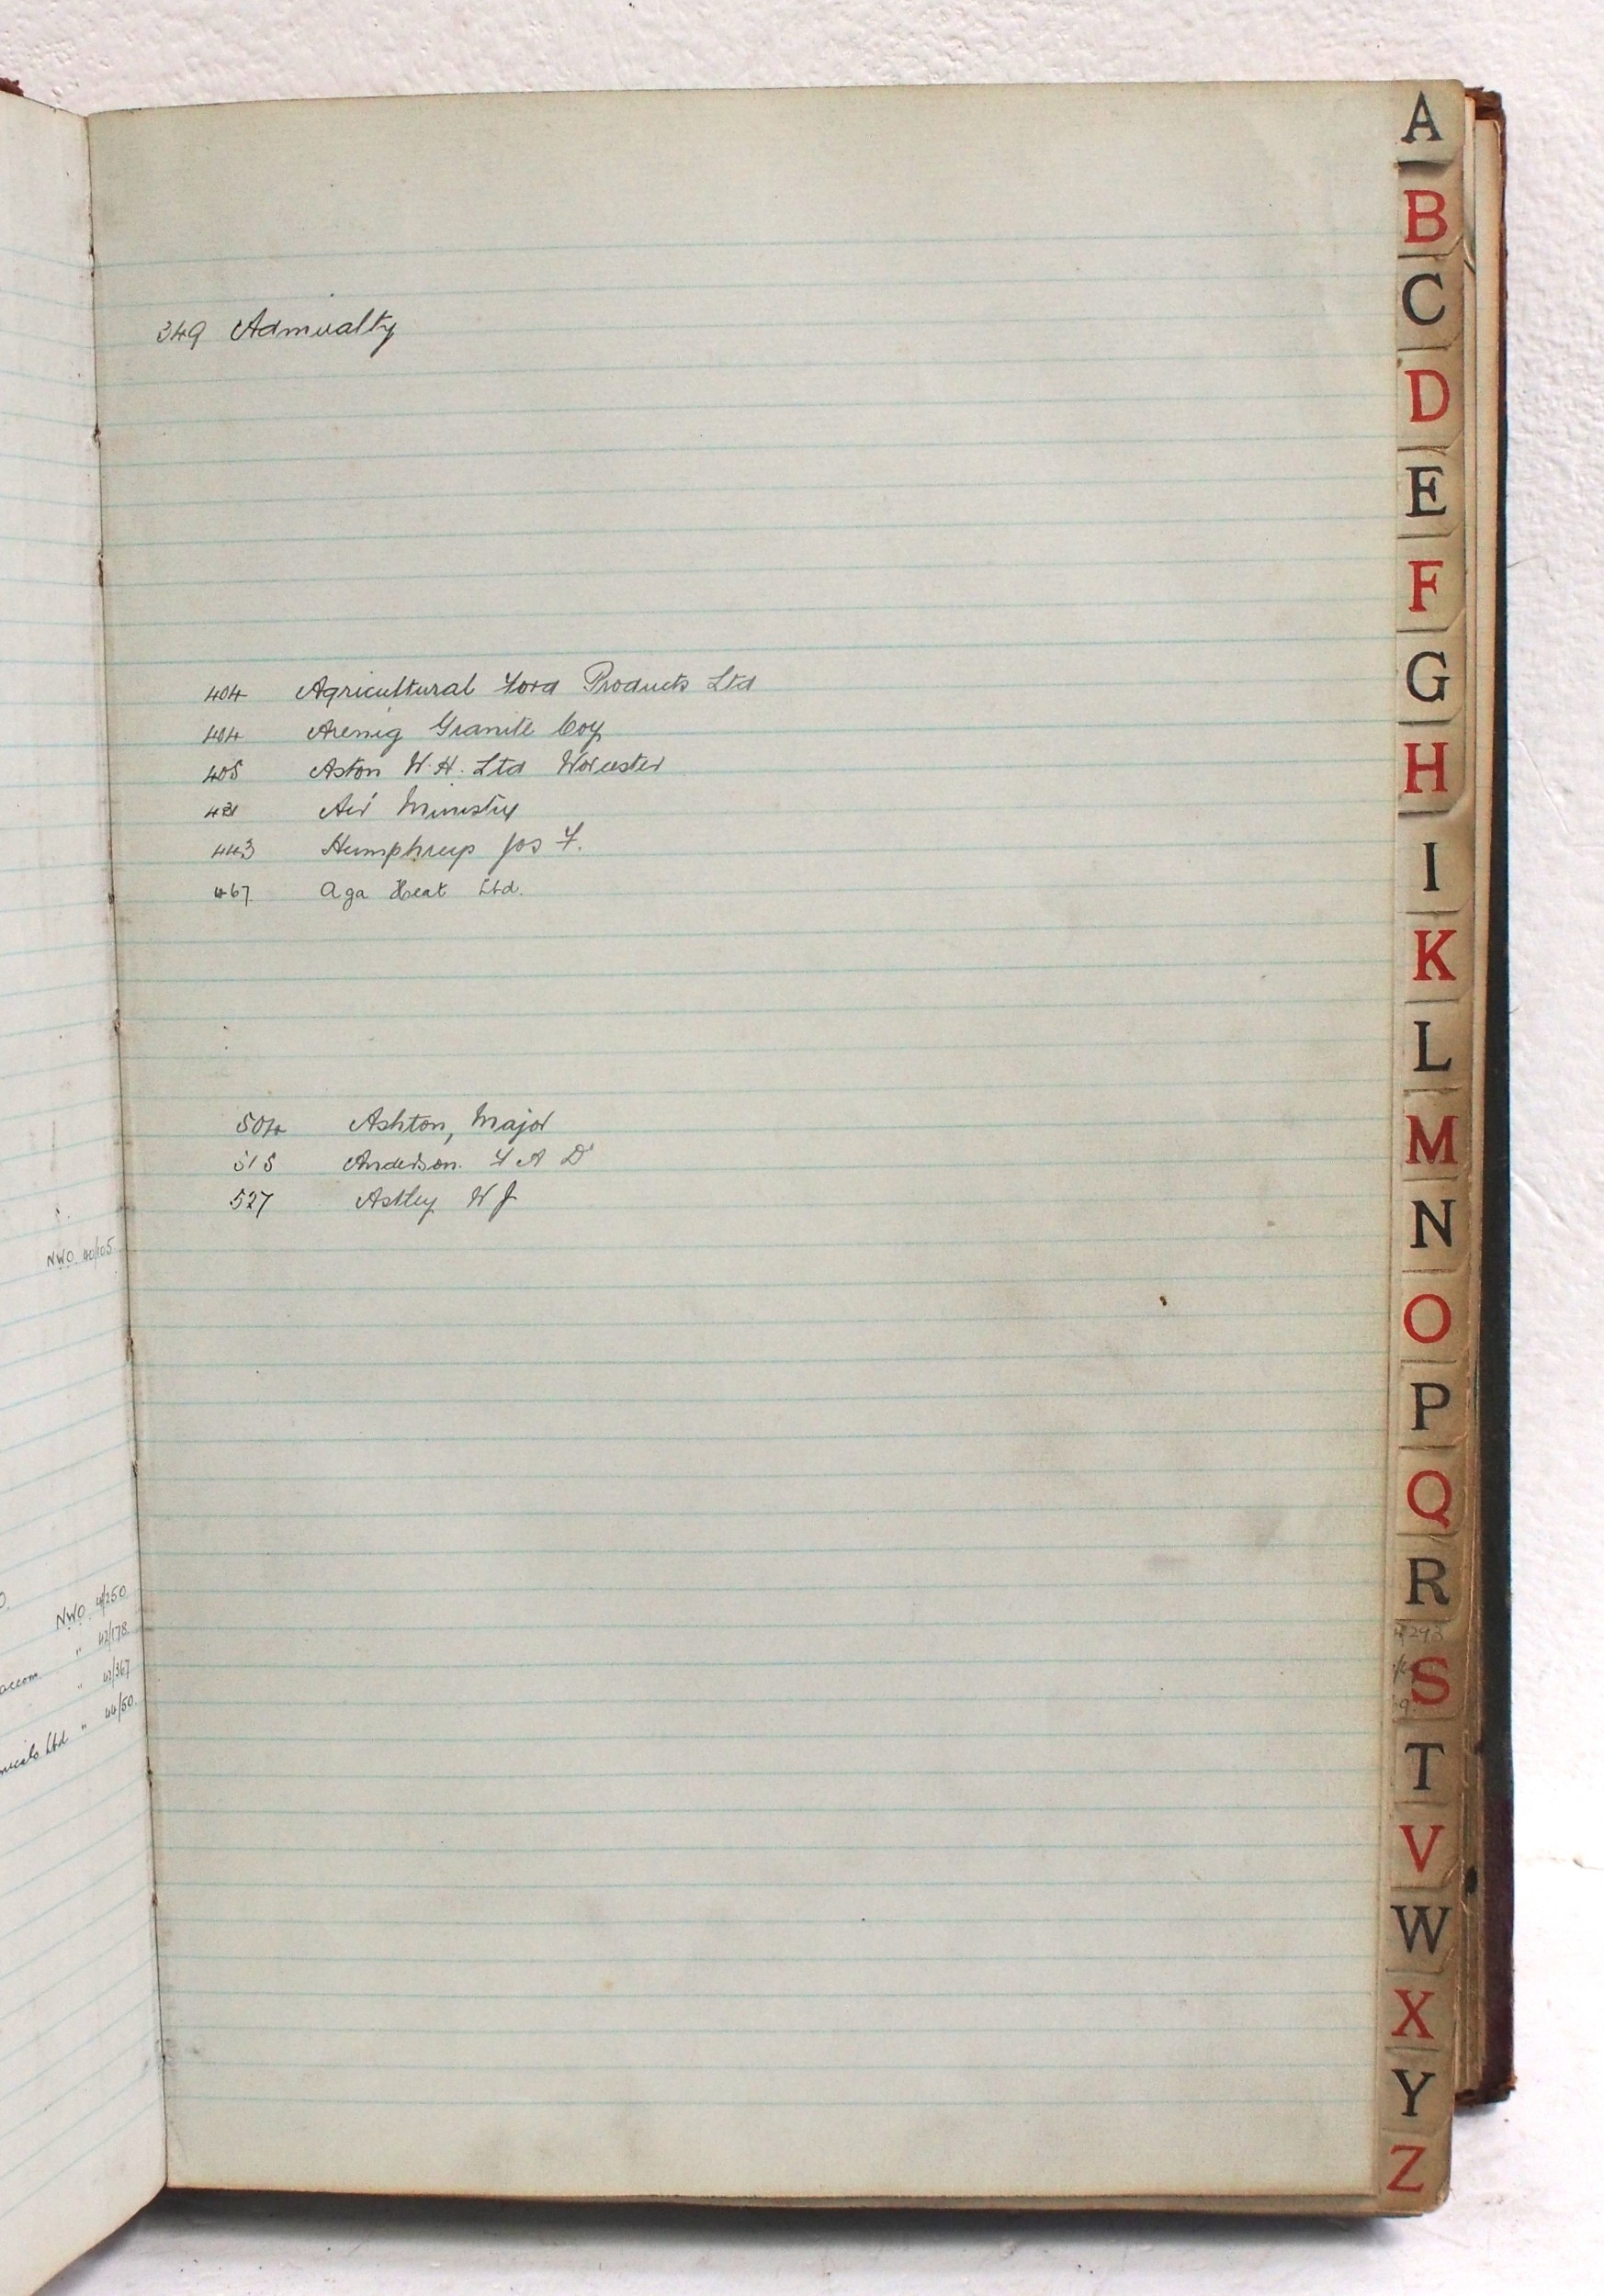 NWO. 40/105
NWO. 41/250
" 42/178.
accom. " 42/367
Ltd " 44/50.
349 Admiralty
404 Agricultural Food Products Ltd
404 Arenig Granite Coy
405 Aston W. H. Ltd Worcester
421 Air Ministry
443 Humphreys Jos F.
467 Aga Heat Ltd.
504 Ashton, Major
515 Anderson. F A Dr
527 Astley W J
A
B
C
D
E
F
G
H
I
K
L
M
N
O
P
Q
R
S
T
V
W
X
Y
Z